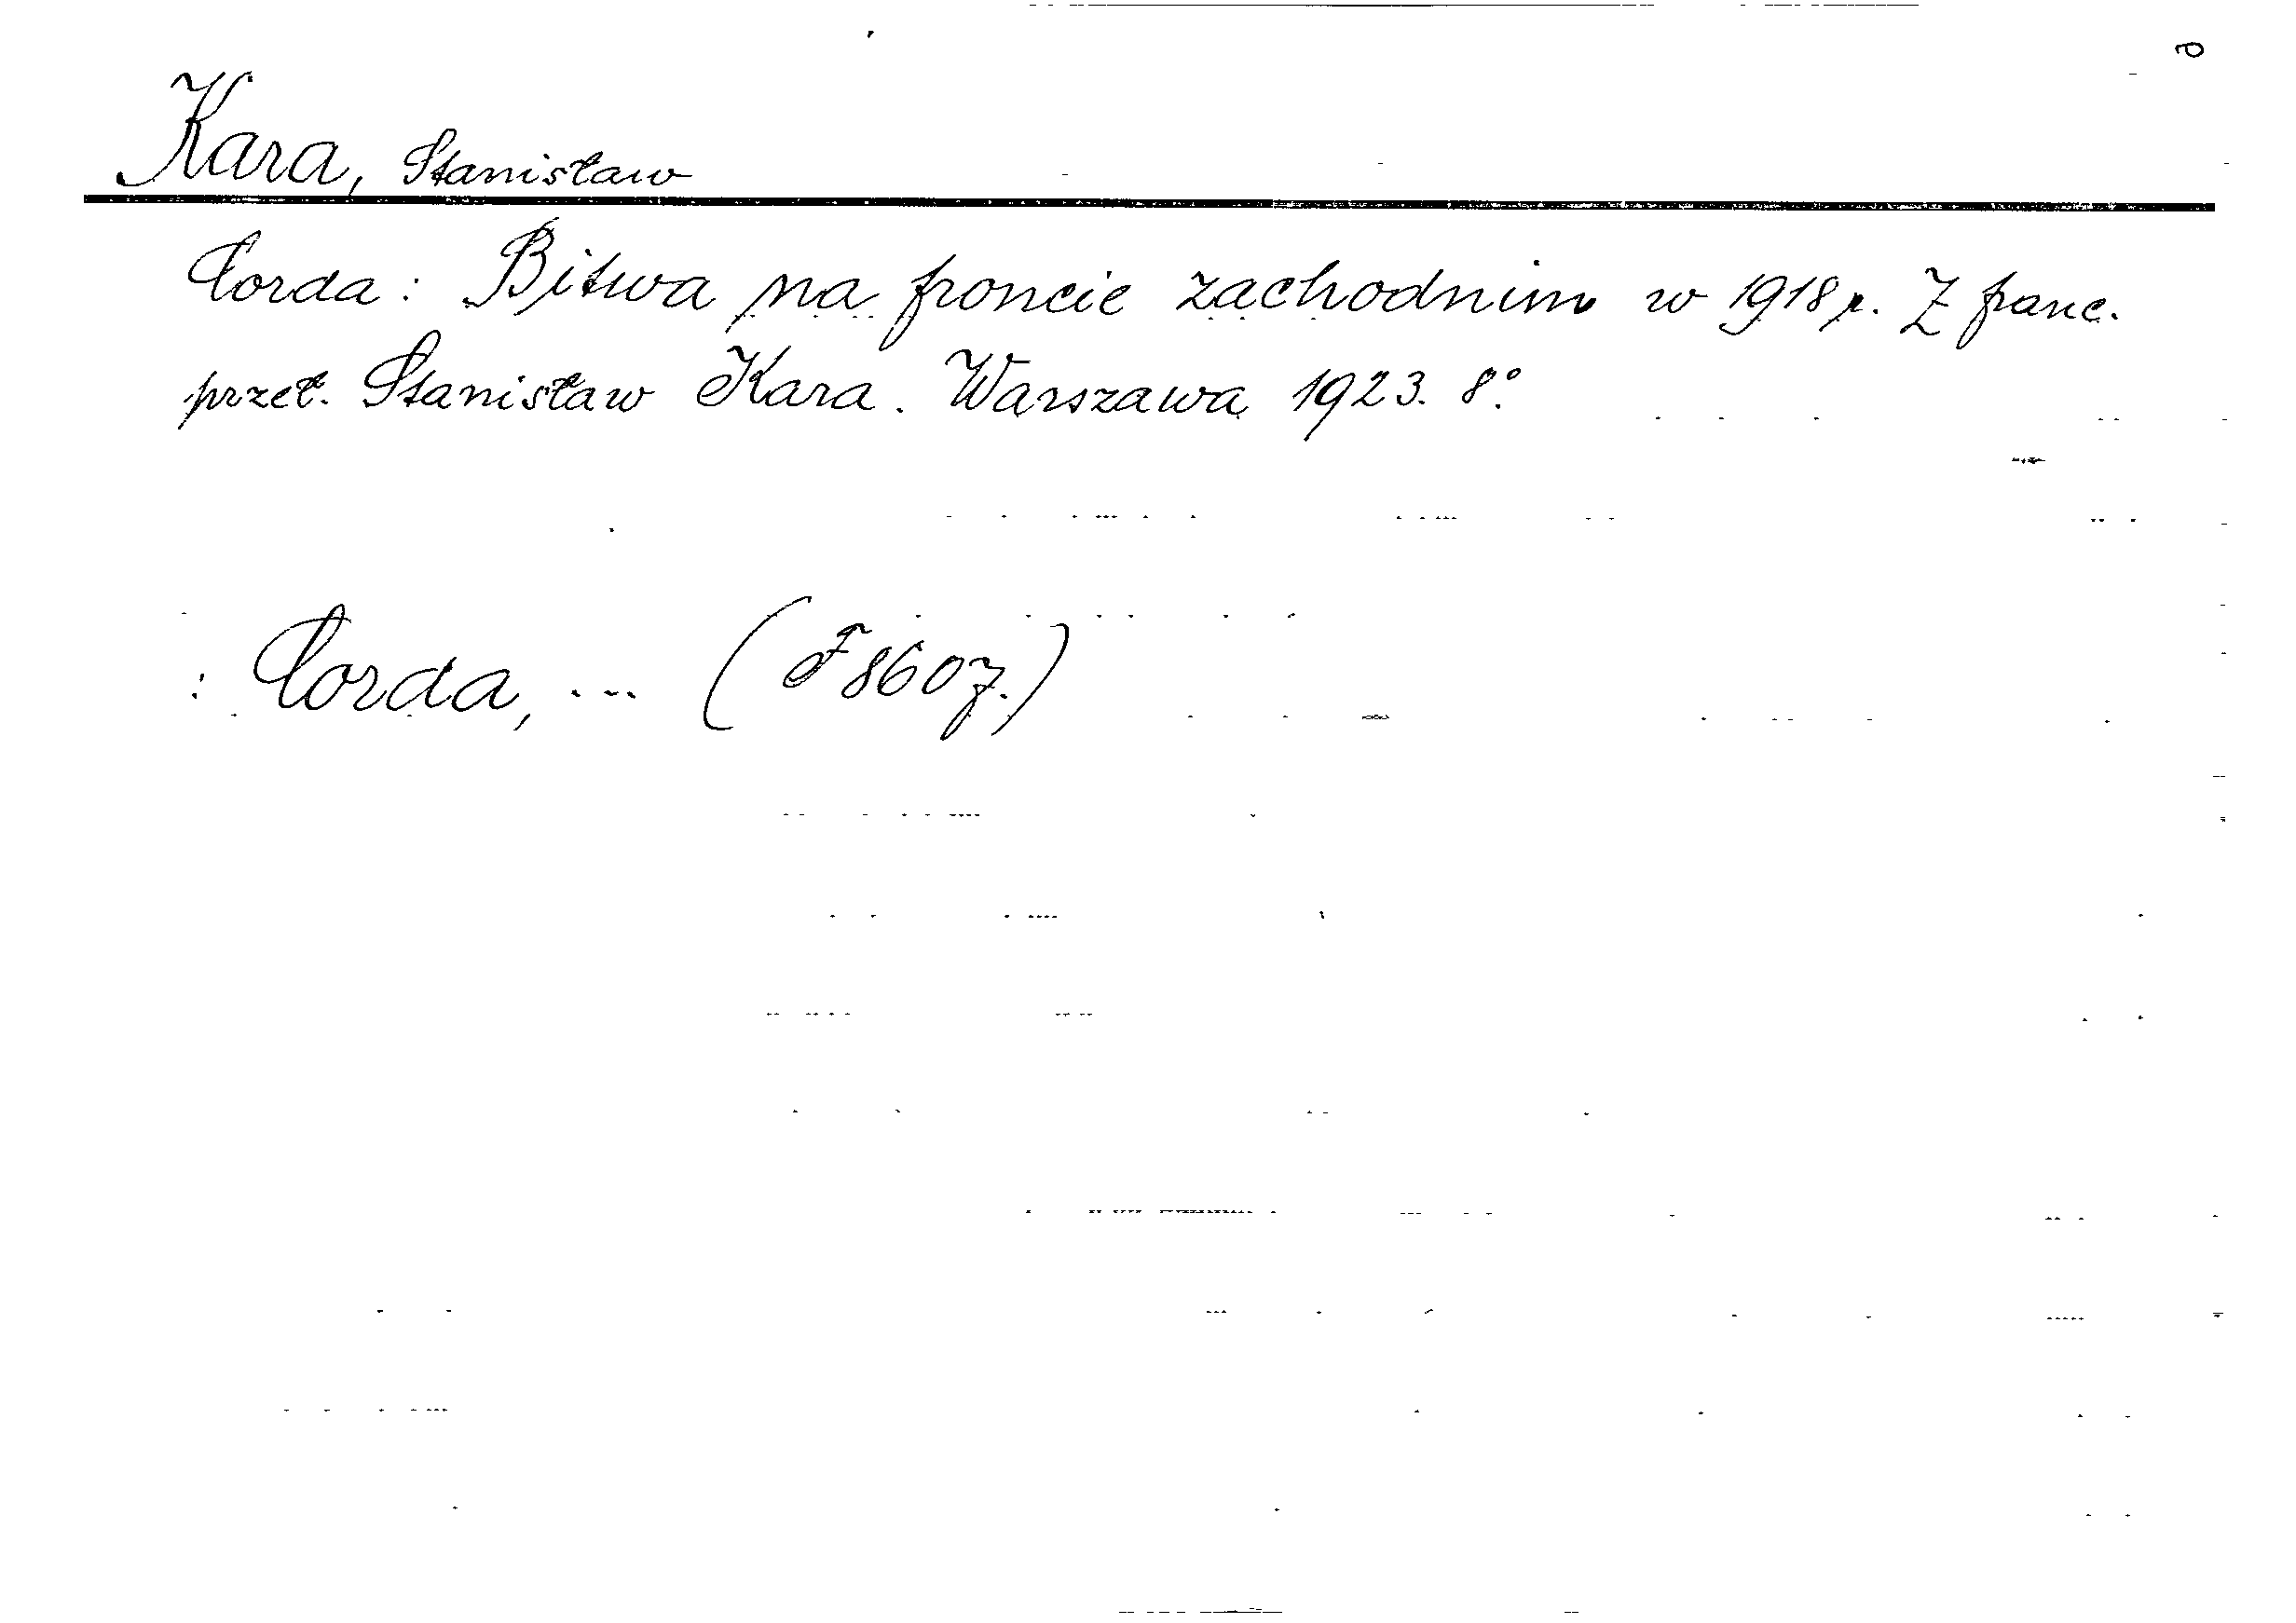 Kara, Stanisław
Corda: Bitwa na froncie zachodnim w 1918 r. Z franc.
przeł. Stanisław Kara. Warszawa 1923. 8°.
: Corda, ... (F 8607.)